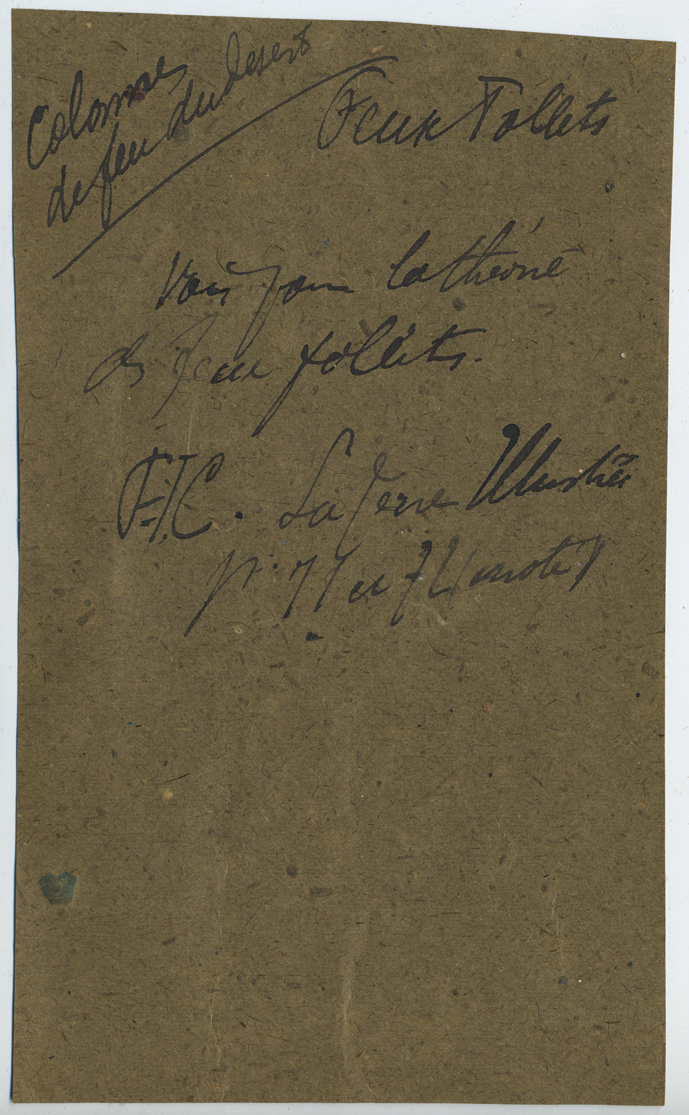 Colonnes
de feu du desert
Feux Follets
Voir pour la théorie
des feux follets.
F.J.C. La Terre Illustrée
p. 71 et 72 en note